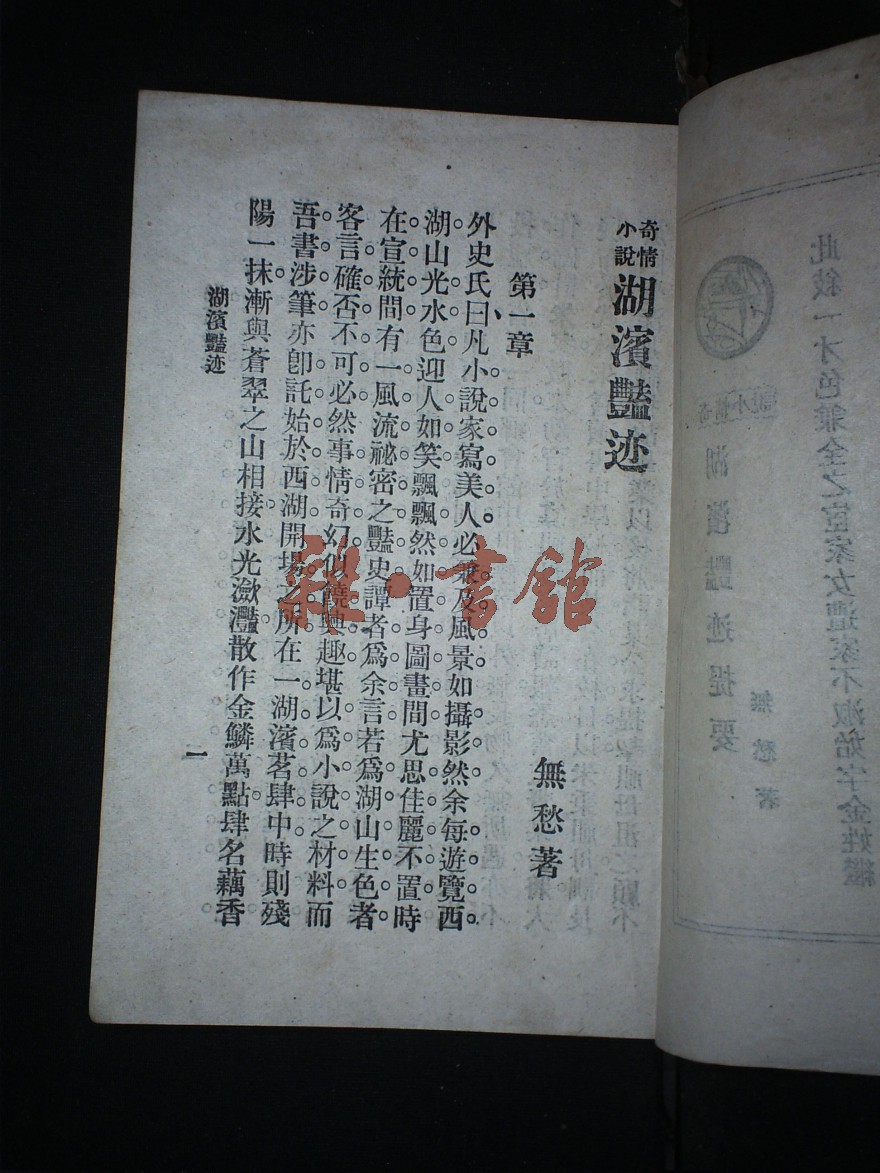 奇情小說
湖濱豔迹
無愁著
第一章
外史氏曰凡小說家寫美人必兼及風景如攝影然余每遊覽西
湖山光水色迎人如笑飄飄然如置身圖畫間尤思佳麗不置時
在宣統間有一風流祕密之豔史譚者爲余言若爲湖山生色者
客言確否不可必然事情奇幻似饒興趣堪以爲小說之材料而
吾書涉筆亦卽託始於西湖開場之所在一湖濱茗肆中時則殘
陽一抹漸與蒼翠之山相接水光瀲灩散作金鱗萬點肆名藕香
湖濱豔迹
一
雜·書館
此敍一才色兼全之宦家女遭家不淑始字金姓繼
奇情小說
湖濱豔迹提要
無愁著